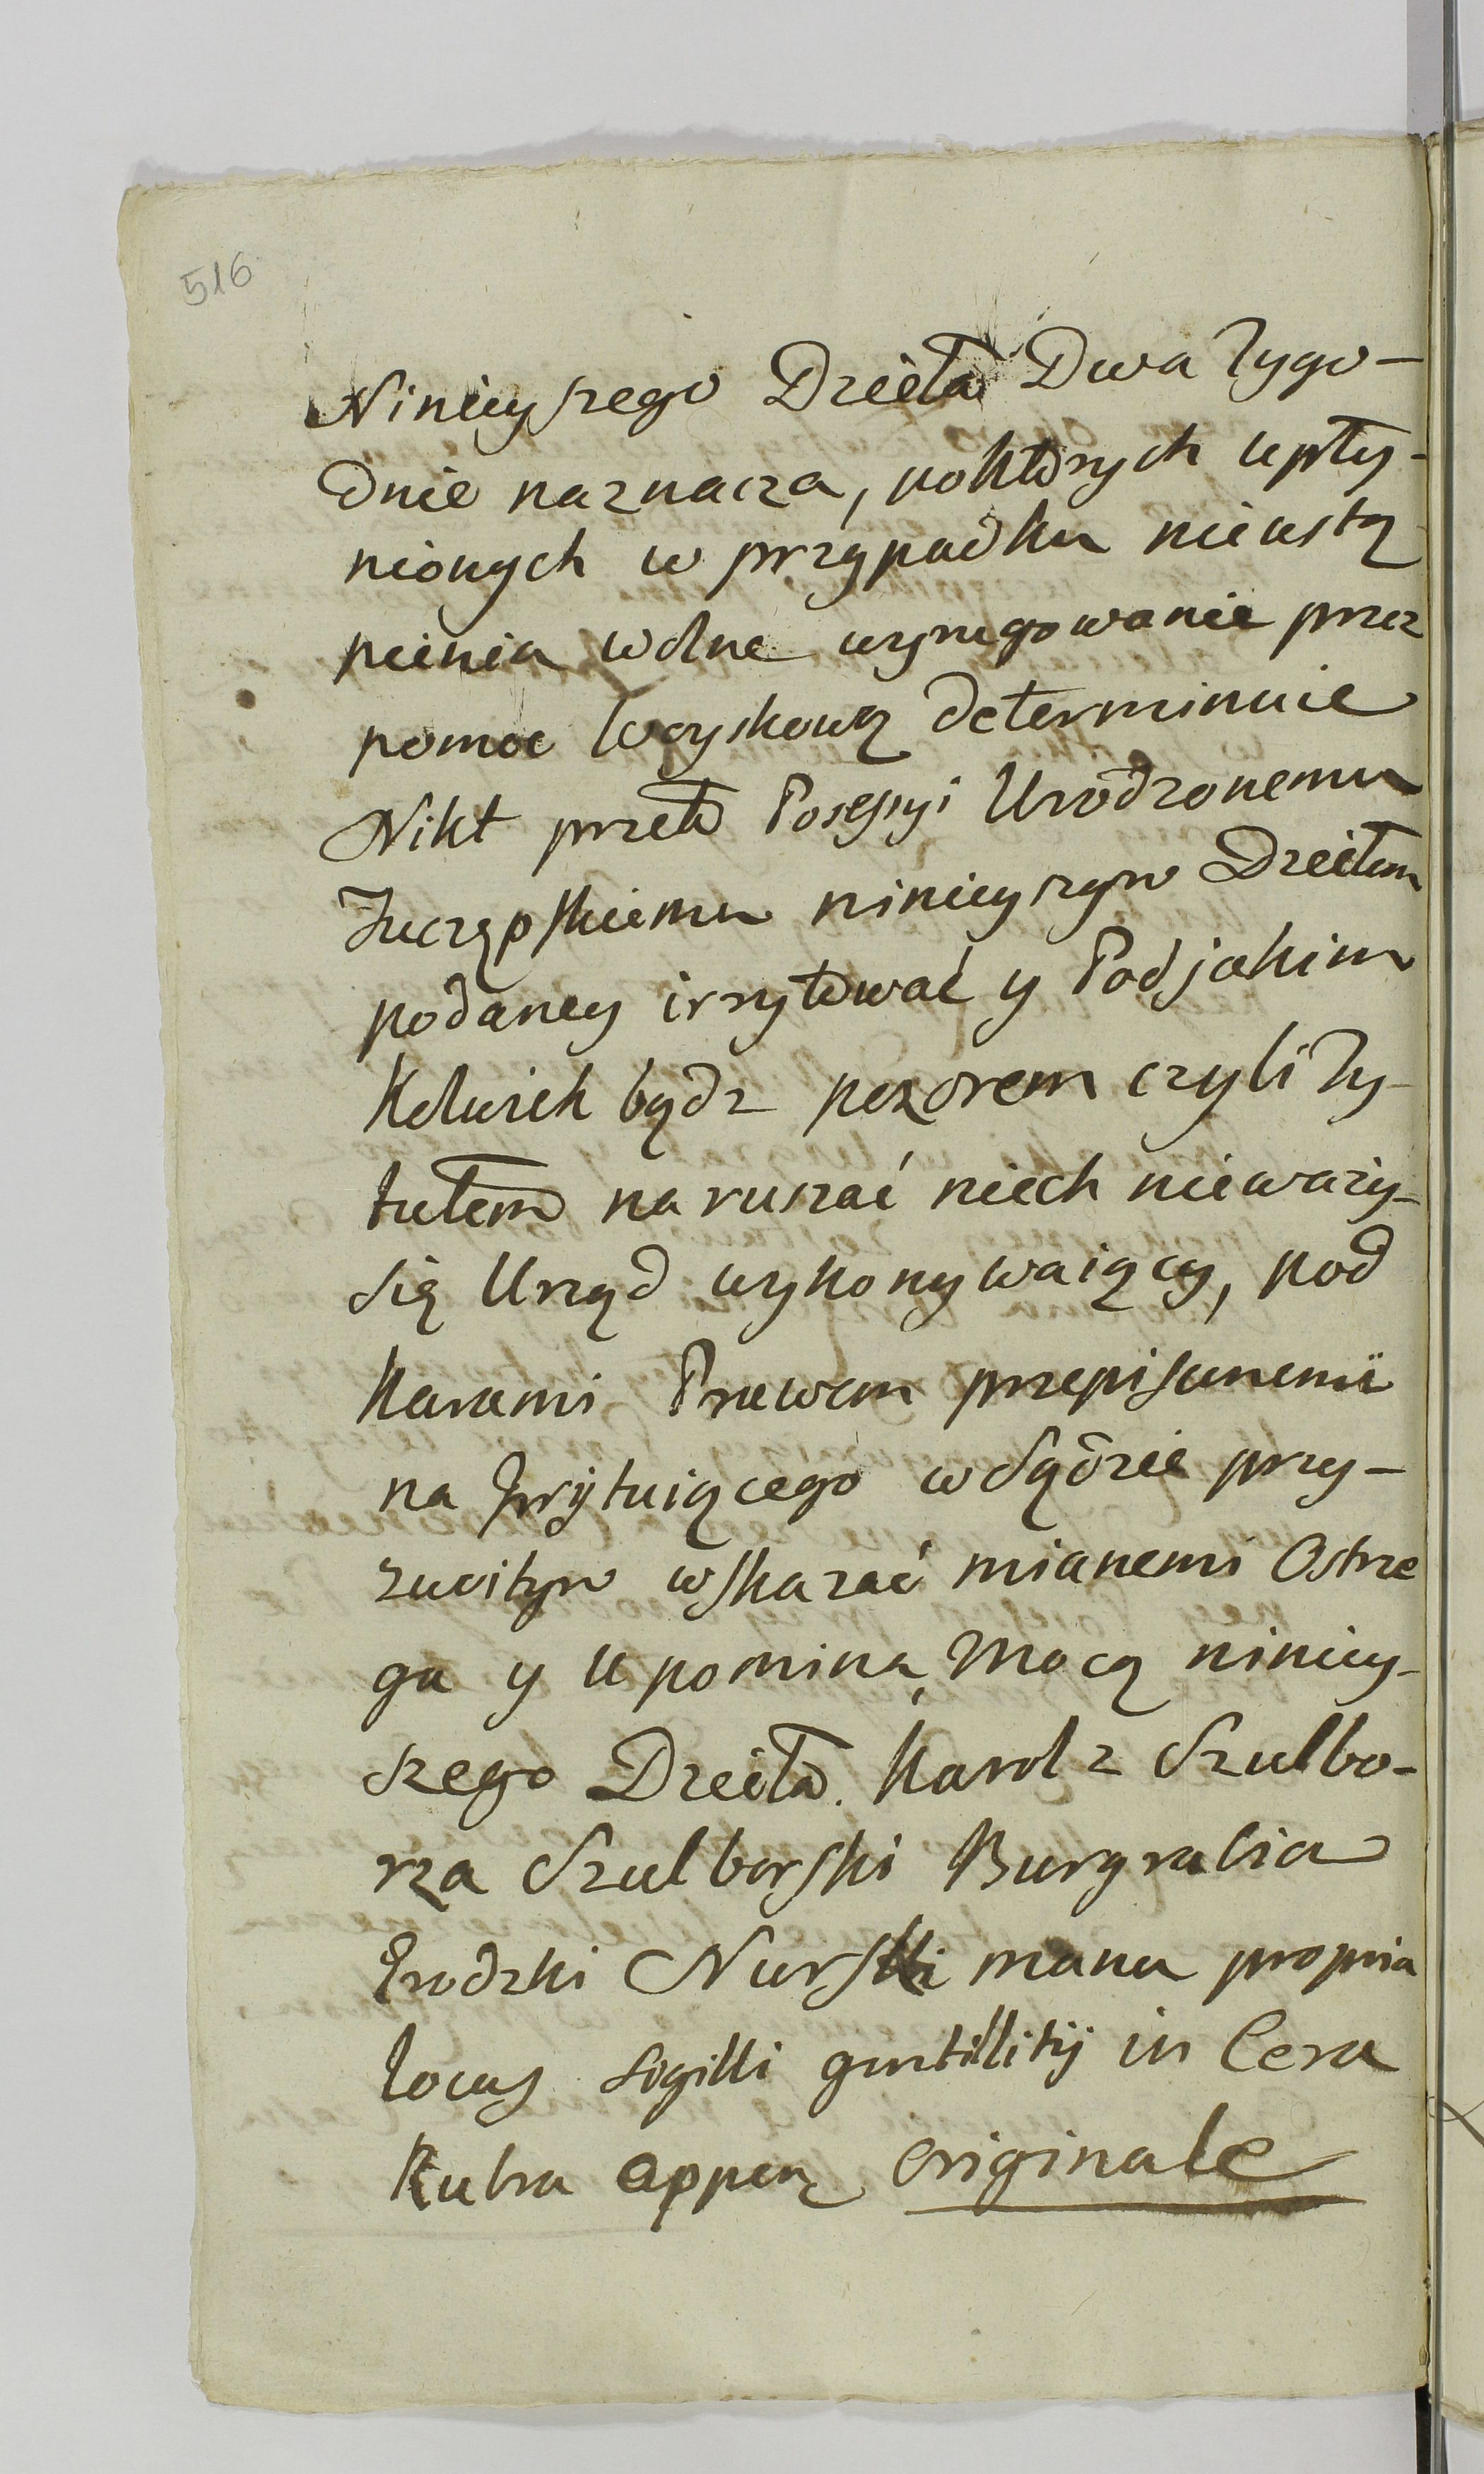 516
Ninieyszego Dzieła Dwa Tygo-
dnie naznacza, poktórych upły-
nionych w przypadku nieustą
pienia wolne wyrugowanie przez
pomoc Woyskową determinuie
Nikt przeto Posessyi Urodzonemu
Zuczępskiemu ninieyszym Dziełem
podaney irrytować y Pod jakim
Kolwiek bądz pozorem czyli Ty-
tułem naruszać niech nieważy-
się Urząd wykonywaiący, pod
Karami Prawem przepisanemi
na Jrrytuiącego wSądzie przy-
zwoitym wskazać mianemi Ostrze
ga y Upomina, Mocą niniey-
szego Dzieła. Karol z Szulbo-
rza Szulborski Burgrabia
Grodzki Nurski manu propria
Locus Sigilli gentillitij in Cera
Rubra appen originale